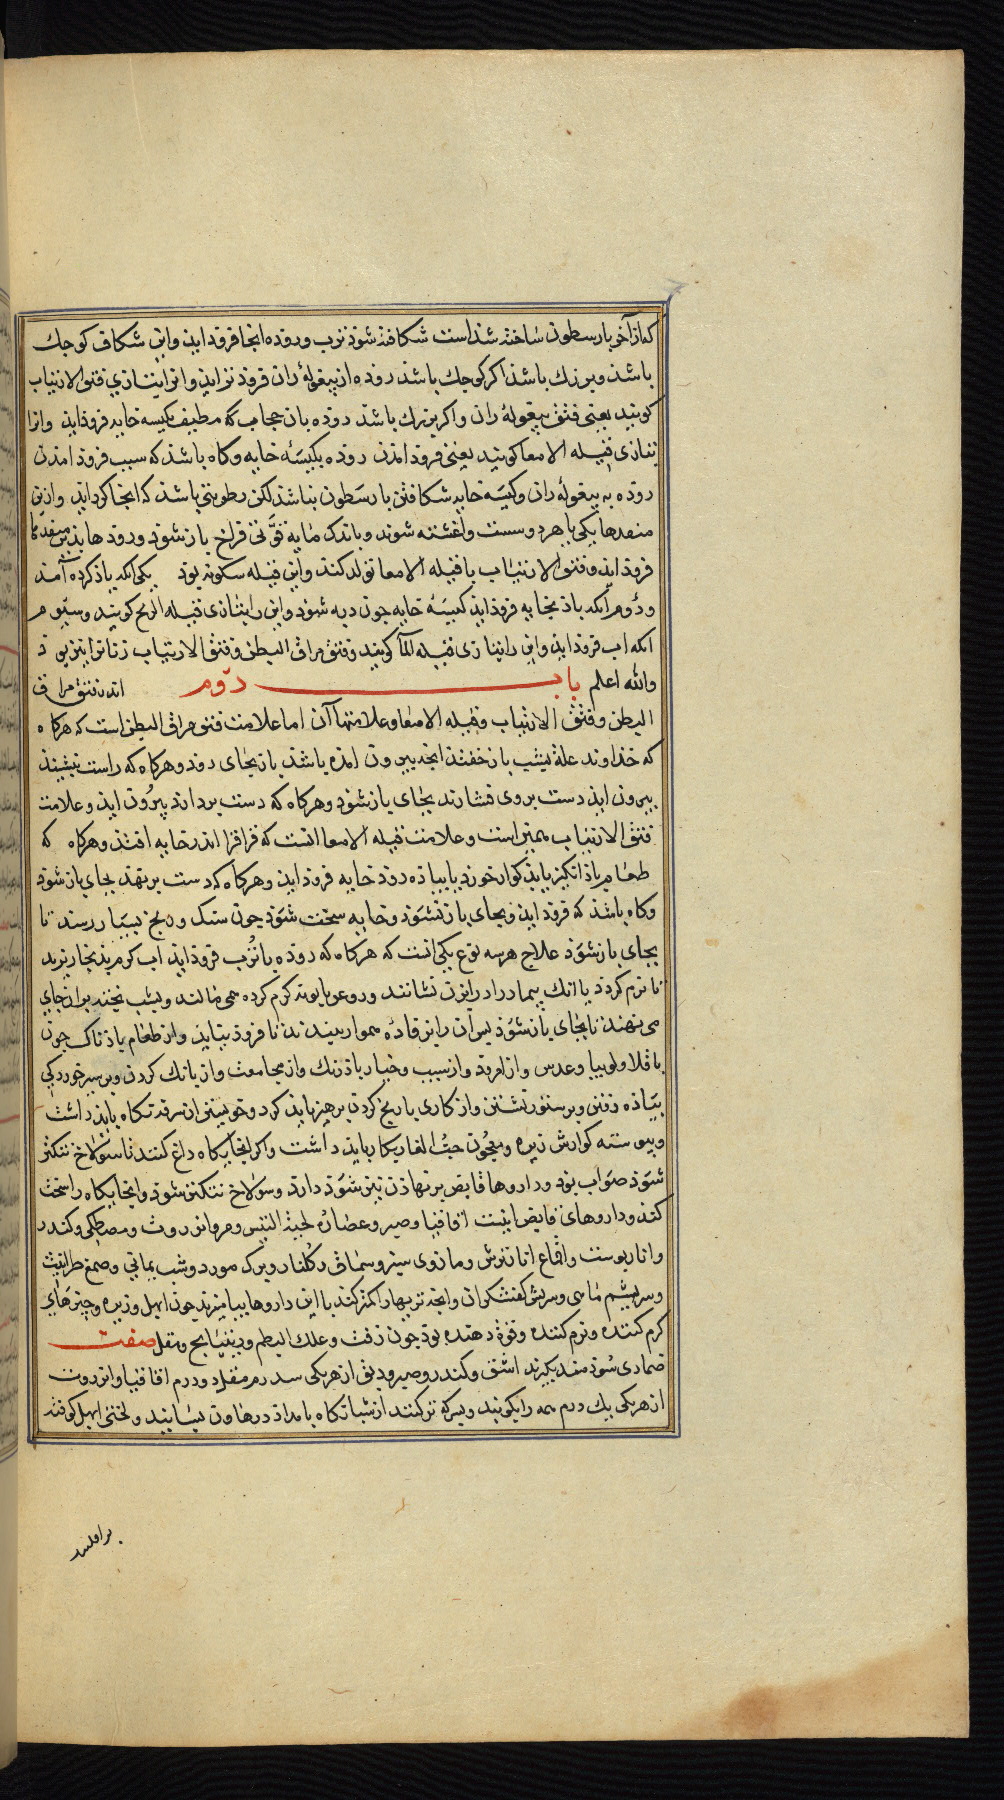 که از آخر بارسطون ساخته شذاست شکافته شوذ ثرب و روده انجا فروذ ایذ و این شکاف کوجك
باشذ و بزرك باشذ اکر کوجك باشذ روده از بیغولهٔ ران فروذ تر ایذ و انرا بتازی فتق الاربیات
کویند یعنی فتق بیغولهٔ ران و اکر بزرك باشذ روده بان حجاب که مطیف بکیسه خایه فروذ ایذ و انرا
بتازی قیله الامعا کویند یعنی فروذ امذن روده بکیسهٔ خایه و کاه باشذ که سبب فروذ امذن
روده به بیغولهٔ ران و کیسه خایه شکافتن بارسطون نباشذ لکن رطوبتی باشذ که انجا کرد اید و ازین
منفدها یکی یا هردو سست و اغشته شوند و باندك مایه قوتی فراخ باز شوذ و رودها بذین منفدها
فروذ ایذ و فتق الاربیات یا قیله الامعا تولد کند و این قیله سکونه بوذ یکی انکه یاذ کرده آمذ
و دوم انکه باذ بخایه فروذ ایذ کیسهٔ خایه جون دبه شوذ و این را بتازی قیله الریح کویند و سیوم
انکه اب فروذ ایذ و این را بتازی قیله الما کویند و فتق مراق البطن و فتق الاربیات زنانرا نیز بوذ
والله اعلم باب دوم اندر فتق مراق
البطن و فتق الاربیات و قیله الامعا و علامتهاآن اما علامت فتق مراق البطن است که هرکاه
که خذاوند علة بشب باز خفتذ انجه بیرون امذه باشذ باز بجای روذ و هرکاه که راست بنشیند
بیرون ایذ دست بروی فشارند بجای باز شوذ و هرکاه که دست بردارند بیرون ایذ و علامت
فتق الاربیات همین است و علامت قیله الامعا انست که قراقر اندر خایه افتذ و هرکاه که
طعام باذ انکیز یا بذکوار خورد یا بباذه روذ خایه فروذ ایذ و هرکاه که دست بر نهذ بجای باز شوذ
و کاه باشذ که فروذ ایذ و بجای باز نشوذ و خایه سخت شوذ جون سنك و رنج بسیار رسد تا
بجای باز شوذ علاج هرسه نوع یکی انست که هرکاه که روده یا ثرب فروذ ایذ اب کرم بذ بخار برند
تا نرم کردذ یا انك بیمار را در ابزن نشانند و روغن بابونه کرم کرده همی مالند و پشب پخته بر ان جای
می نهند تا بجای باز شوذ پس ان را برفاده هموار ببندند تا فروذ نیاید و از طعام باذناك جون
باقلا و لوبیا و عدس و از امرود و از سیب و خیار باذرنك و از مجامعت و از بانك کردن و بر سیر خوردکی
بیاذه رفتن و بر ستور نشستن و از کاری با رنج کردن برهیز بایذ کرد و خویشتن از سرفه نکاه بایذ داشت
و بیوسته کوارش زیره و معجون حب الغار بکار باید داشت و اکر انجایکاه داغ کنند تا سولاخ تنکتر
شوذ صواب بوذ و داروها قابض بر نهاذن نیز شوذ دارد و سولاخ تنکتر شوذ و انجایکاه را سخت
کند و داروهای قابض اینست اقاقیا و صبر و عصاره لحیة التیس و مر و انزروت و مصطکی و کندر
و انار پوست و اقماع انار ترش و مازوی سبز و سماق و کلنار و برك مورد و شب یمانی و صمغ طرابیث
و سریشم ماهی و سریش کفشکران و انجه تر بهار اکمز کند با این داروها بیامیزند جون ابهل و زیره و جیزهای
کرم کننده و نرم کننده و قوة دهنده بوذ جون زفت و علك البطم و دبق و بابونج و مقل صفت
ضمادی سوذمند بکیرند اشق و کندر و صبر و دبق از هریکی سه درم مقل دو درم اقاقیا و انزروت
از هریکی یك درم همه را بکوبند و بسرکه تر کنند از شبانکاه تا بامداد در هاون بسایند و لختی ابهل کوفته